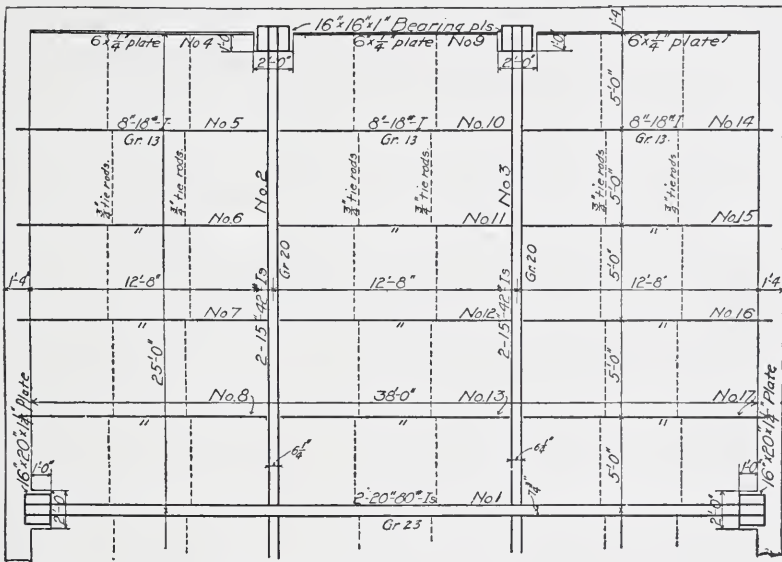 1'-4"
16"x16"x1" Bearing pls
6"x1/4" plate No 4
6"x1/4" plate No 9
6"x1/4" plate
1'-0"
1'-0"
2'-0"
2'-0"
5'-0"
8"-18#-I No 5
8"-18#-I No.10
8"-18#I No 14
Gr. 13
Gr. 13
Gr. 13.
3/4" tie rods.
3/4" tie rods.
No. 2
3/4" tie rods
3/4" tie rods.
No 3
3/4" tie rods
5'-0"
3/4" tie rods.
No.6
No.11
No.15
"
"
"
Gr 20
Gr. 20
1'-4"
12'-8"
12'-8"
5'-0"
12'-8"
1'-4"
2-15"-42# Is
2-15"-42# Is
No 7
No12
No 16
"
"
"
25'-0"
5'-0"
No.8
38'-0"
No.13
No.17
"
"
"
16"x20"x1 1/4" Plate
16"x20"x1 1/4" Plate
6 1/4"
6 1/4"
5'-0"
1'-0"
1'-0"
2'-0"
2-20"-80#-Is No 1
2'-0"
Gr 23